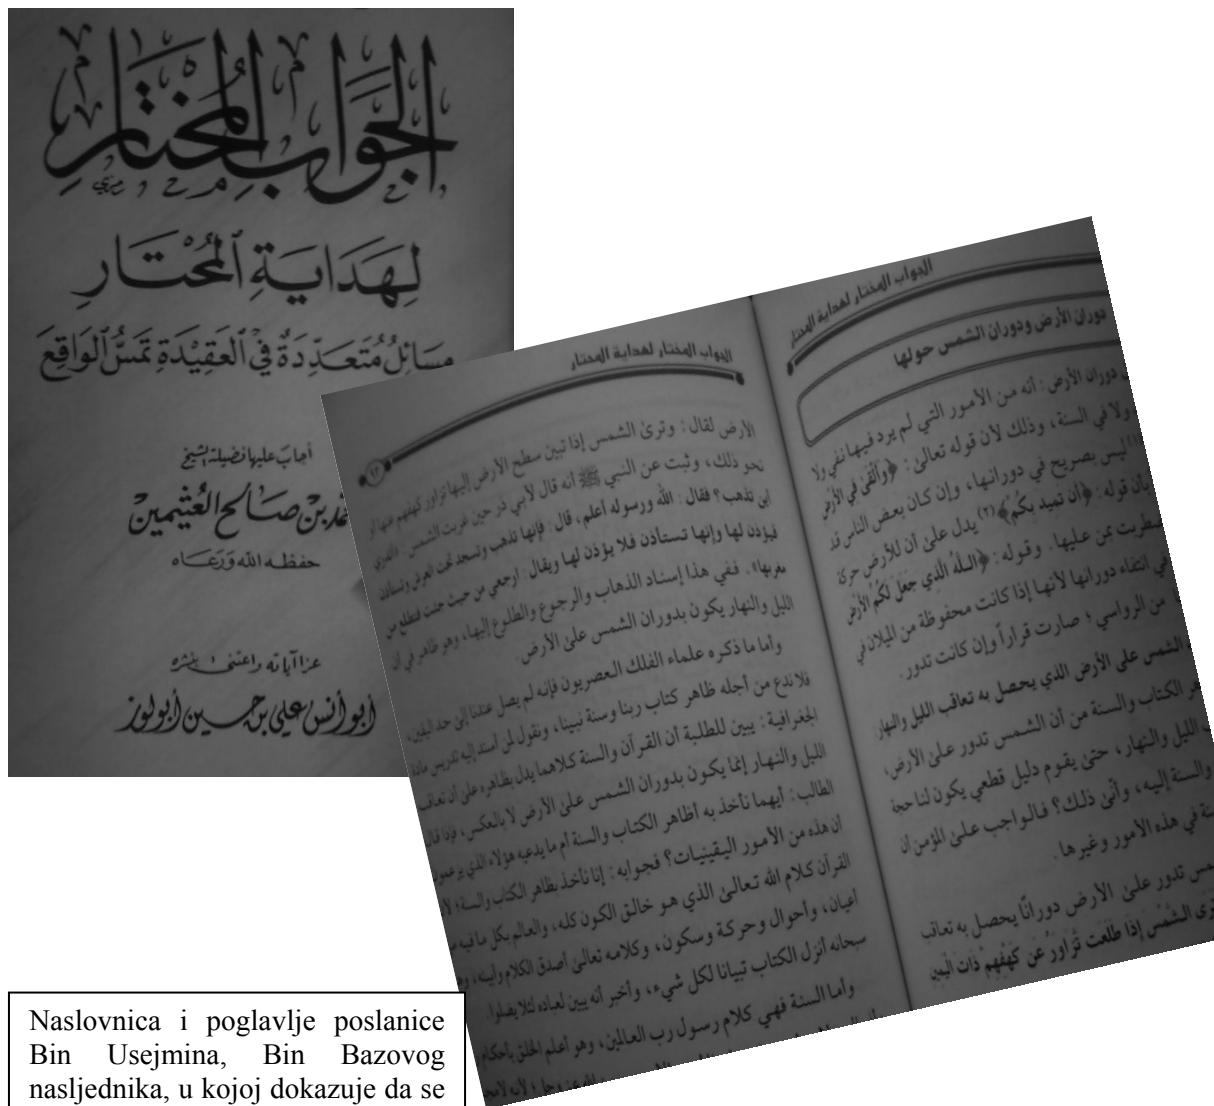 الجواب المختار
لِهَدَايَةِ المُحْتَارِ
مَسَائِلُ مُتَعَدِّدَةٌ فِي العَقِيْدَةِ تَمَسُّ الوَاقِعَ
أجاب عليها فضيلة الشيخ
بن صالح العثيمين
حفظه الله ورعاه
عزا آياته واعتنى بنشره
أبو أنس علي بن حسين أبو لوز
الجواب المختار لهداية المحتار
دوران الأرض ودوران الشمس حولها
دوران الأرض: أنه من الأمور التي لم يرد فيها نفي ولا
ولا في السنة، وذلك لأن قوله تعالى: ﴿وألقى في الأرض
ليس بصريح في دورانها، وإن كان بعض الناس قد
بأن قوله: ﴿أن تميد بكم﴾(٢) يدل على أن للأرض حركة
بمن عليها. وقوله: ﴿الله الذي جعل لكم الأرض
في انتفاء دورانها لأنها إذا كانت محفوظة من الميلان في
من الرواسي؛ صارت قراراً وإن كانت تدور.
الشمس على الأرض الذي يحصل به تعاقب الليل والنهار
الكتاب والسنة من أن الشمس تدور على الأرض،
الليل والنهار، حتى يقوم دليل قطعي يكون لنا حجة
والسنة إليه، وأنى ذلك؟ فالواجب على المؤمن أن
في هذه الأمور وغيرها.
تدور على الأرض دوراناً يحصل به تعاقب
الشمس إذا طلعت تزاور عن كهفهم ذات اليمين
الجواب المختار لهداية المحتار
الأرض لقال: وترى الشمس إذا تبين سطح الأرض إليها تزاور كهفهم عنها أو
نحو ذلك، وثبت عن النبي ﷺ أنه قال لأبي ذر حين غربت الشمس: «أتدري
أين تذهب؟ فقال: الله ورسوله أعلم، قال: فإنها تذهب وتسجد تحت العرش وتستأذن
فيؤذن لها وإنها تستأذن فلا يؤذن لها ويقال: ارجعي من حيث جئت فتطلع من
مغربها». ففي هذا إسناد الذهاب والرجوع والطلوع إليها، وهو ظاهر في أن
الليل والنهار يكون بدوران الشمس على الأرض.
وأما ما ذكره علماء الفلك العصريون فإنه لم يصل عندنا إلى حد اليقين،
فلا ندع من أجله ظاهر كتاب ربنا وسنة نبينا، ونقول لمن أسند إليه تدريس مادة
الجغرافية: يبين للطلبة أن القرآن والسنة كلاهما يدل بظاهره على أن تعاقب
الليل والنهار إنما يكون بدوران الشمس على الأرض لا بالعكس، فإذا قال
الطالب: أيهما نأخذ به أظاهر الكتاب والسنة أم ما يدعيه هؤلاء الذي يزعمون
أن هذه من الأمور اليقينيات؟ فجوابه: إنا نأخذ بظاهر الكتاب والسنة؛
القرآن كلام الله تعالى الذي هو خالق الكون كله، والعالم بكل ما فيه
أعيان، وأحوال وحركة وسكون، وكلامه تعالى أصدق الكلام وأبينه،
سبحانه أنزل الكتاب تبيانا لكل شيء، وأخبر أنه يبين لعباده لئلا يضلوا.
وأما السنة فهي كلام رسول رب العالمين، وهو أعلم الخلق بأحكام
Naslovnica i poglavlje poslanice
Bin Usejmina, Bin Bazovog
nasljednika, u kojoj dokazuje da se